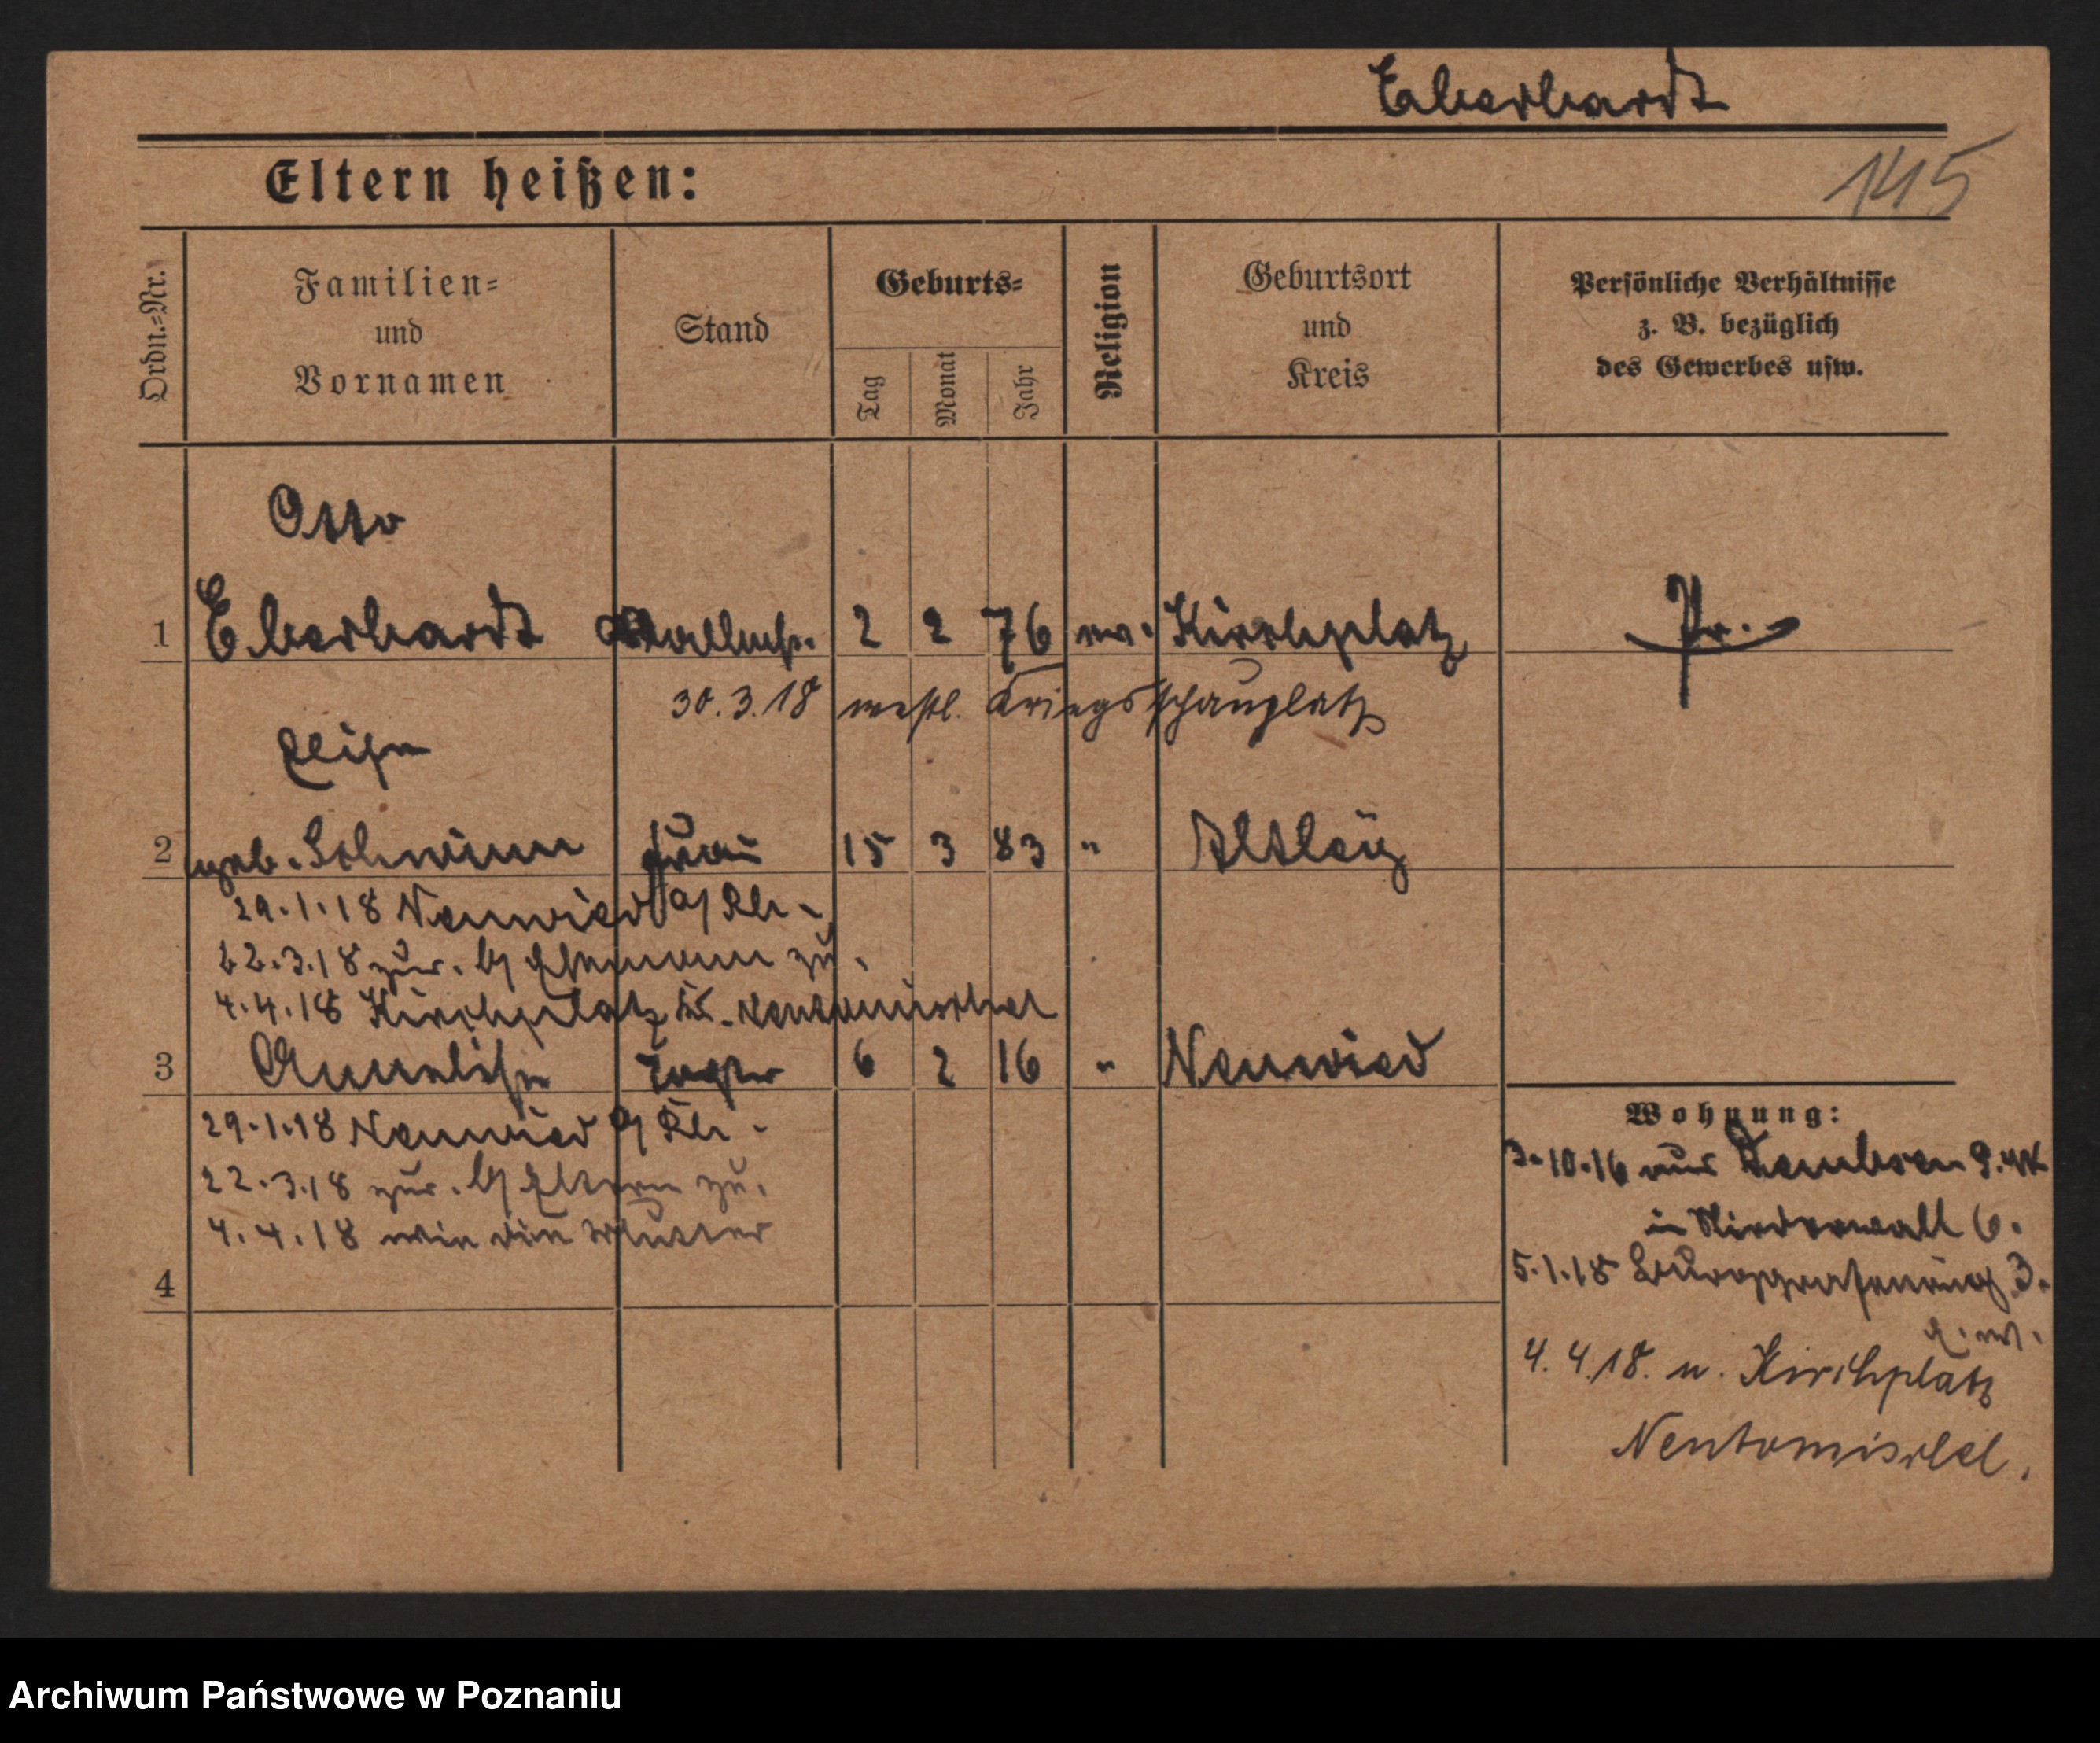 Eberhardt
145
Eltern heißen:
Ordn.=Nr.
Familien=
und
Vornamen
Stand
Geburts=
Tag
Monat
Jahr
Religion
Geburtsort
und
Kreis
Persönliche Verhältnisse
z. B. bezüglich
des Gewerbes usw.
Otto
1 Eberhardt 2 2 76 ev. Kirchplatz Pr.
30.3.18 westl. Kriegsschauplatz
2 geb. Frau 15 3 83 "
29.1.18 Neuwied a/Rh.
22.3.18 zur. v/ Ehemann zu.
4.4.18 Kirchplatz Kr. Neutomischel
3 Annelise Tochter 6 2 16 " Neuwied
29.1.18 Neuwied a/Rh.
22.3.18 zur. v/ Eltern zu.
4.4.18 wie die Mutter
4
Wohnung:
3.10.16 aus
in Niederwall 6.
5.1.18 Burggrafenring 3.
4.4.18. n. Kirchplatz
Neutomischel.
Archiwum Państwowe w Poznaniu